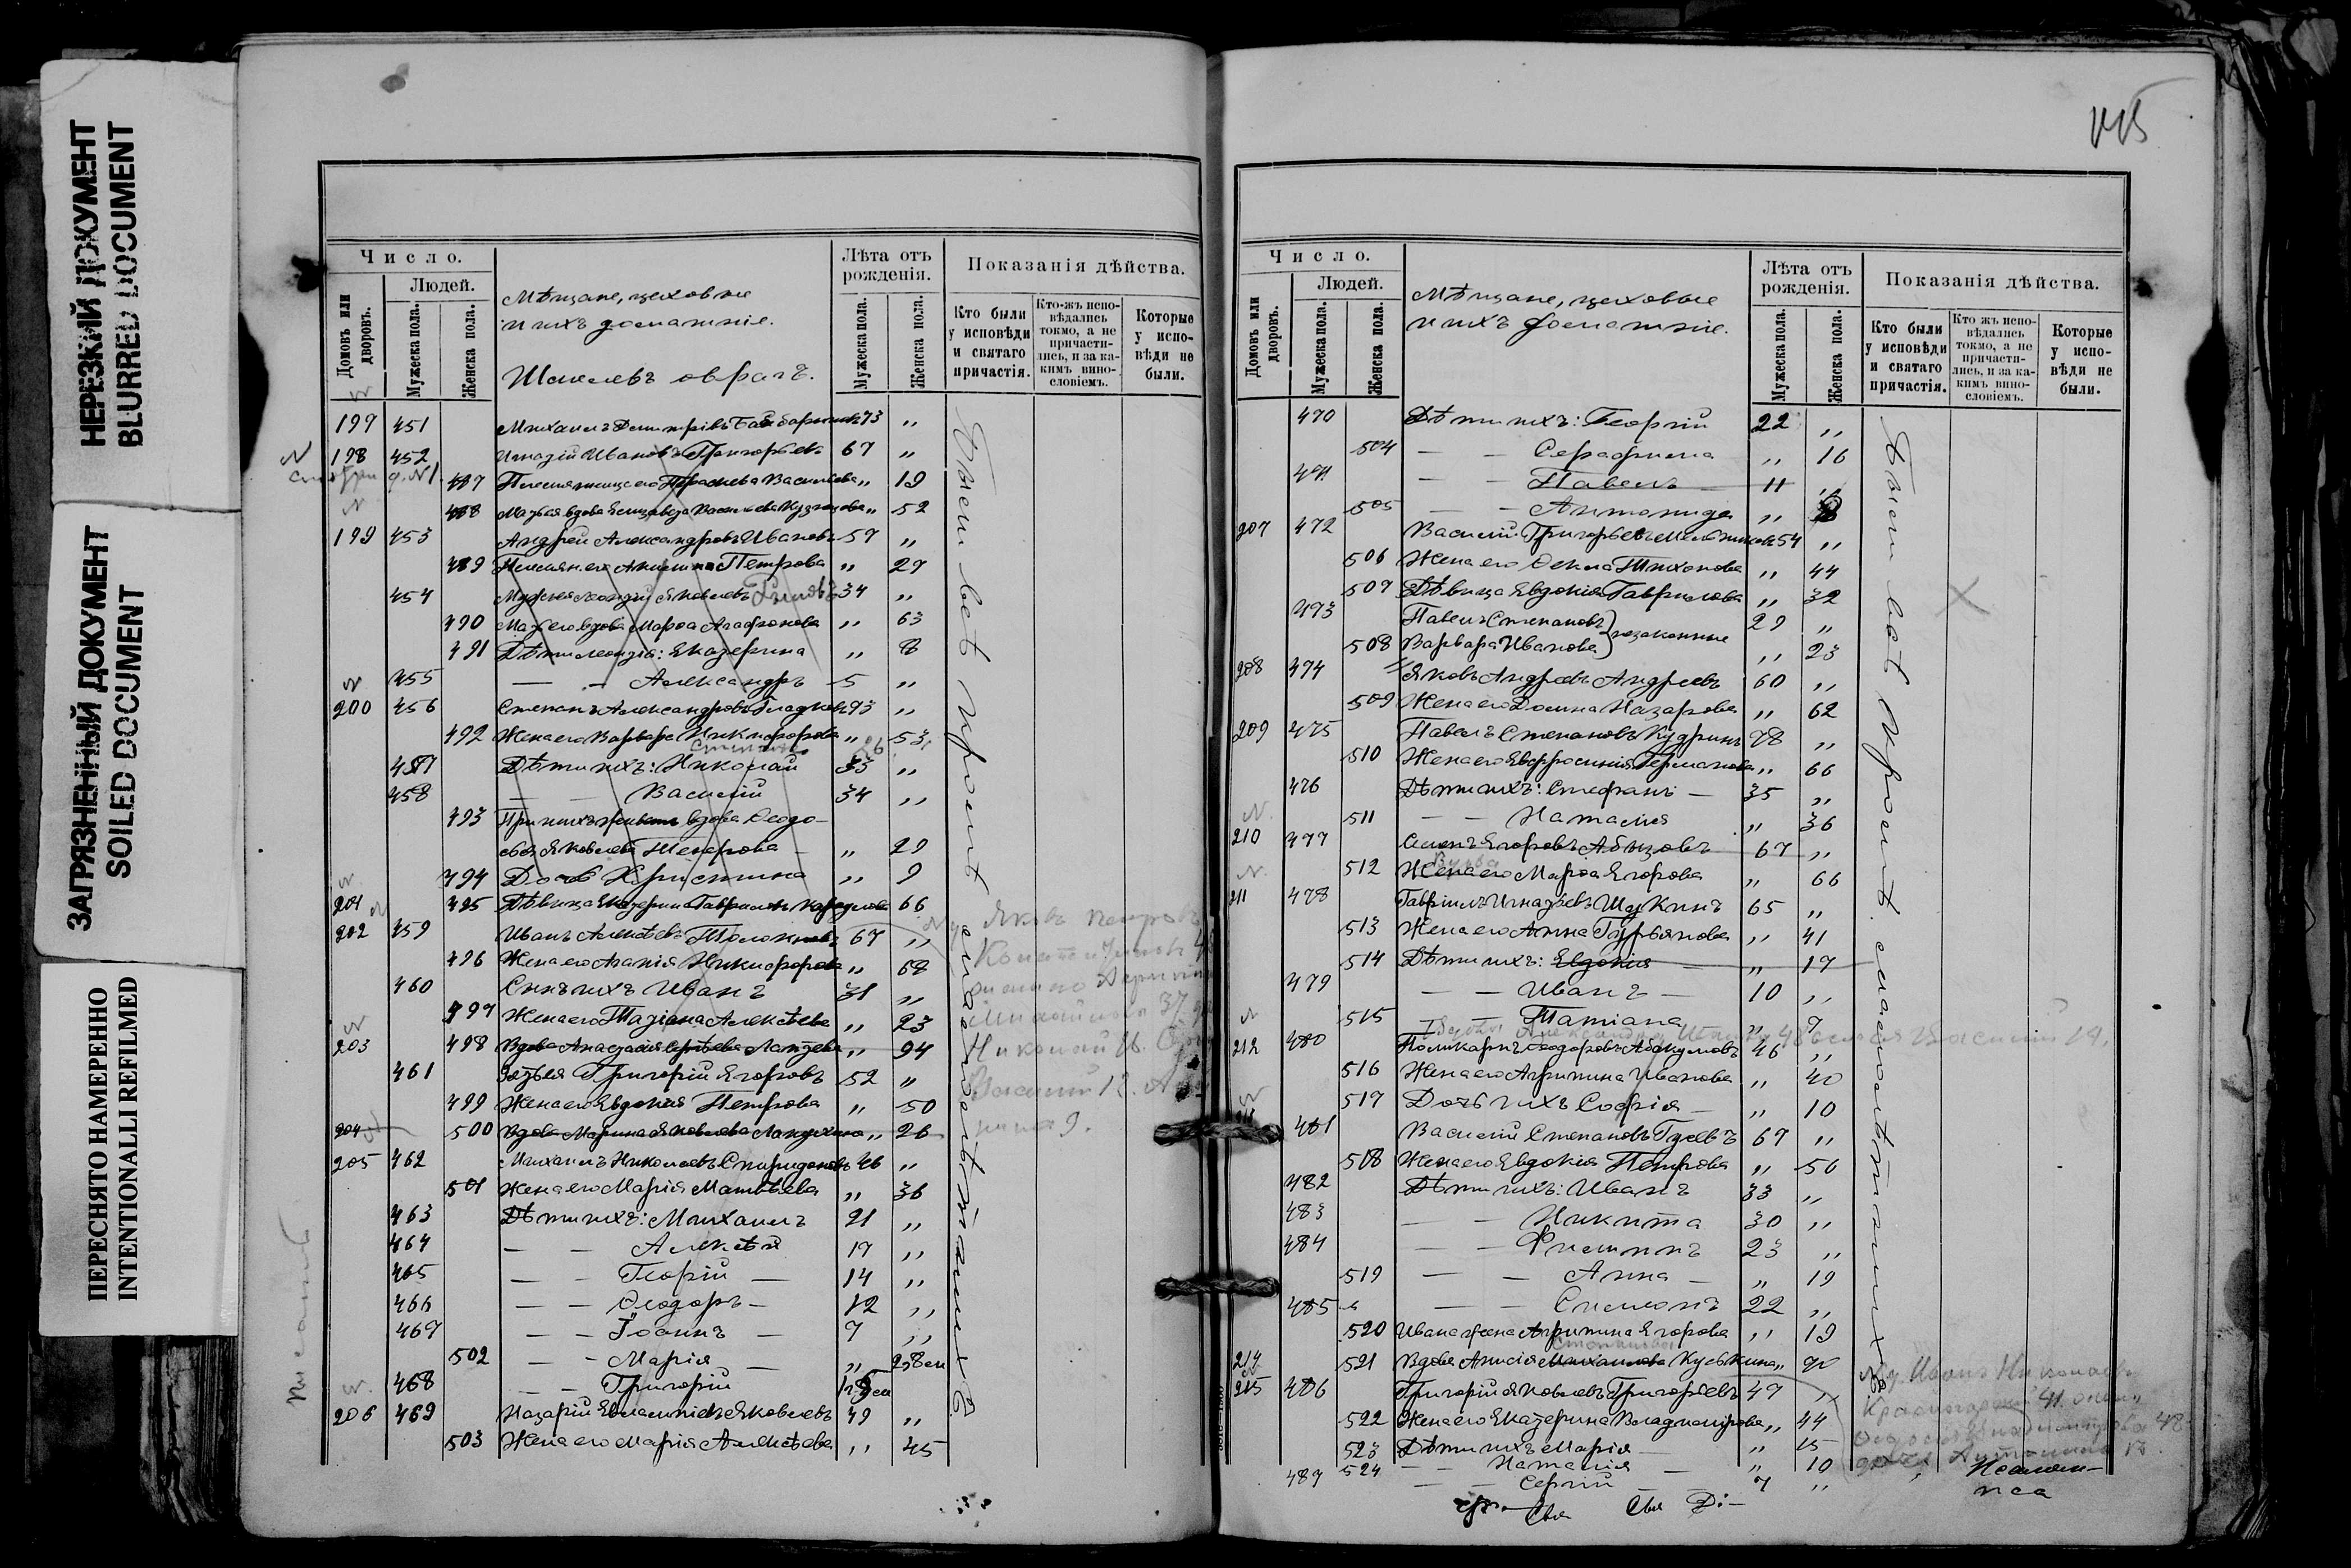 НЕРЕЗКИЙ ДОКУМЕНТ
BLURRED DOCUMENT
ЗАГРЯЗНЕННЫЙ ДОКУМЕНТ
SOILED DOCUMENT
ПЕРЕСНЯТО НАМЕРЕННО
INTENTIONALLI REFILMED
Число.
Людей.
Домовъ или дворовъ.
Мужеска пола.
Женска пола.
Мѣщане, цеховые
и ихъ домашніе.
Шепелевъ оврагъ.
Лѣта отъ рожденія.
Мужеска пола.
Женска пола.
Показанія дѣйства.
Кто были у исповѣди и святаго причастія.
Кто-жъ исповѣдались токмо, а не причастились, и за какимъ винословіемъ.
Которые у исповѣди не были.
197 451 Михаилъ Димитріевъ 73 „
198 452 Игнатій Ивановъ Григорьевъ 67 „
487 Племянница его Параскева Васильева „ 19
488 Мать ея вдова Елизавета Васильева Кузнецова „ 52
199 453 Андрей Александровъ Ивановъ 57 „
489 Племян. его Акилина Петрова „ 27
454 Муж ея Леонтій Яковлевъ 34 „
490 Мать его вдова Марѳа Агаѳонова „ 63
491 Дѣти Леонтія: Екатерина „ 8
455 — — Александръ 5 „
200 456 Степанъ Александровъ Гладковъ 73 „
492 Жена его Варвара Никифорова „ 53
457 Дѣти ихъ: Николай 33 „
458 — — Василій 34 „
493 При нихъ живетъ вдова Ѳеодо-
сія Яковлева „ 29
494 Дочь Христина „ 9
201 495 Дѣвица Екатерина Гаврилова 66
202 459 Иванъ Алексѣевъ 67 „
496 Жена его Агапія Никифорова „ 68
460 Сынъ ихъ Иванъ 31 „
497 Жена его Татіана Алексѣева „ 23
203 498 Вдова Анастасія Сергѣева Лаптева „ 94
461 Зять ея Григорій Егоровъ 52 „
499 Жена его Евдокия Петрова „ 50
204 500 Вдова Марина Яковлева „ 26
205 462 Михаилъ Николаевъ Спиридоновъ 46 „
501 Жена его Марія Матвѣева „ 36
463 Дѣти ихъ: Михаилъ 21 „
464 — — Алексѣй 17 „
465 — — Георгій — 14 „
466 — — Ѳеодоръ — 12 „
467 — — Іоаннъ — 7 „
502 — — Марія —
468 — — Григорій
206 469 Назарій Евлампіевъ Яковлевъ 49 „
503 Жена его Марія Алексѣева „ 45
Были всѣ кромѣ малолѣтнихъ.
Число.
Людей.
Домовъ или дворовъ.
Мужеска пола.
Женска пола.
Мѣщане, цеховые
и ихъ домашніе.
Лѣта отъ рожденія.
Мужеска пола.
Женска пола.
Показанія дѣйства.
Кто были у исповѣди и святаго причастія.
Кто жъ исповѣдались токмо, а не причастились, и за какимъ винословіемъ.
Которые у исповѣди не были.
470 Дѣти ихъ: Георгій 22 „
504 — — Серафима „ 16
471 — — Павелъ 11 „
505 — — Антонида „
207 472 Василій Григорьевъ Мельниковъ 54 „
506 Жена его Ѳекла Тихонова „ 44
507 Дѣвица Евдокія Гаврилова „ 32
473 Павелъ Степановъ 29 „
508 Варвара Иванова } незаконные „ 23
208 474 Яковъ Андреевъ Андреевъ 60 „
509 Жена его Домна Назарова „ 62
209 475 Павелъ Степановъ Кудринъ 78 „
510 Жена его Евфросинія Германова „ 66
476 Дѣти ихъ: Стефанъ — 35 „
511 — — Наталія „ 36
210 477 Семенъ Егоровъ Абызовъ 67 „
512 Жена его Марѳа Егорова „ 66
211 478 Гавріилъ Игнатьевъ Шуткинъ 65 „
513 Жена его Анна Гурьянова „ 41
514 Дѣти ихъ: Евдокія „ 17
479 — — Иванъ — 10 „
515 — — Татіана „ 7
212 480 Поликарпъ Ѳеодоровъ Абакумовъ 46 „
516 Жена его Агрипина Иванова „ 40
517 Дочь ихъ Софія — „ 10
481 Василій Степановъ Гусевъ 67 „
518 Жена его Евдокия Петрова „ 56
482 Дѣти ихъ: Иванъ 33 „
483 — — Никита 30 „
484 — — Филиппъ 23 „
519 — — Анна — „ 19
485 — — Симеонъ 22 „
520 Ивана жена Агрипина Егорова „ 19
214 521 Вдова Анисія Михаилова Кузькина „ 70
215 486 Григорій Яковлевъ Григорьевъ 47 „
522 Жена его Екатерина Владимірова „ 44
523 Дѣти ихъ Марія — „ 15
524 — — Наталія — „ 10
487 — — Сергій — 7 „
Были всѣ кромѣ малолѣтнихъ